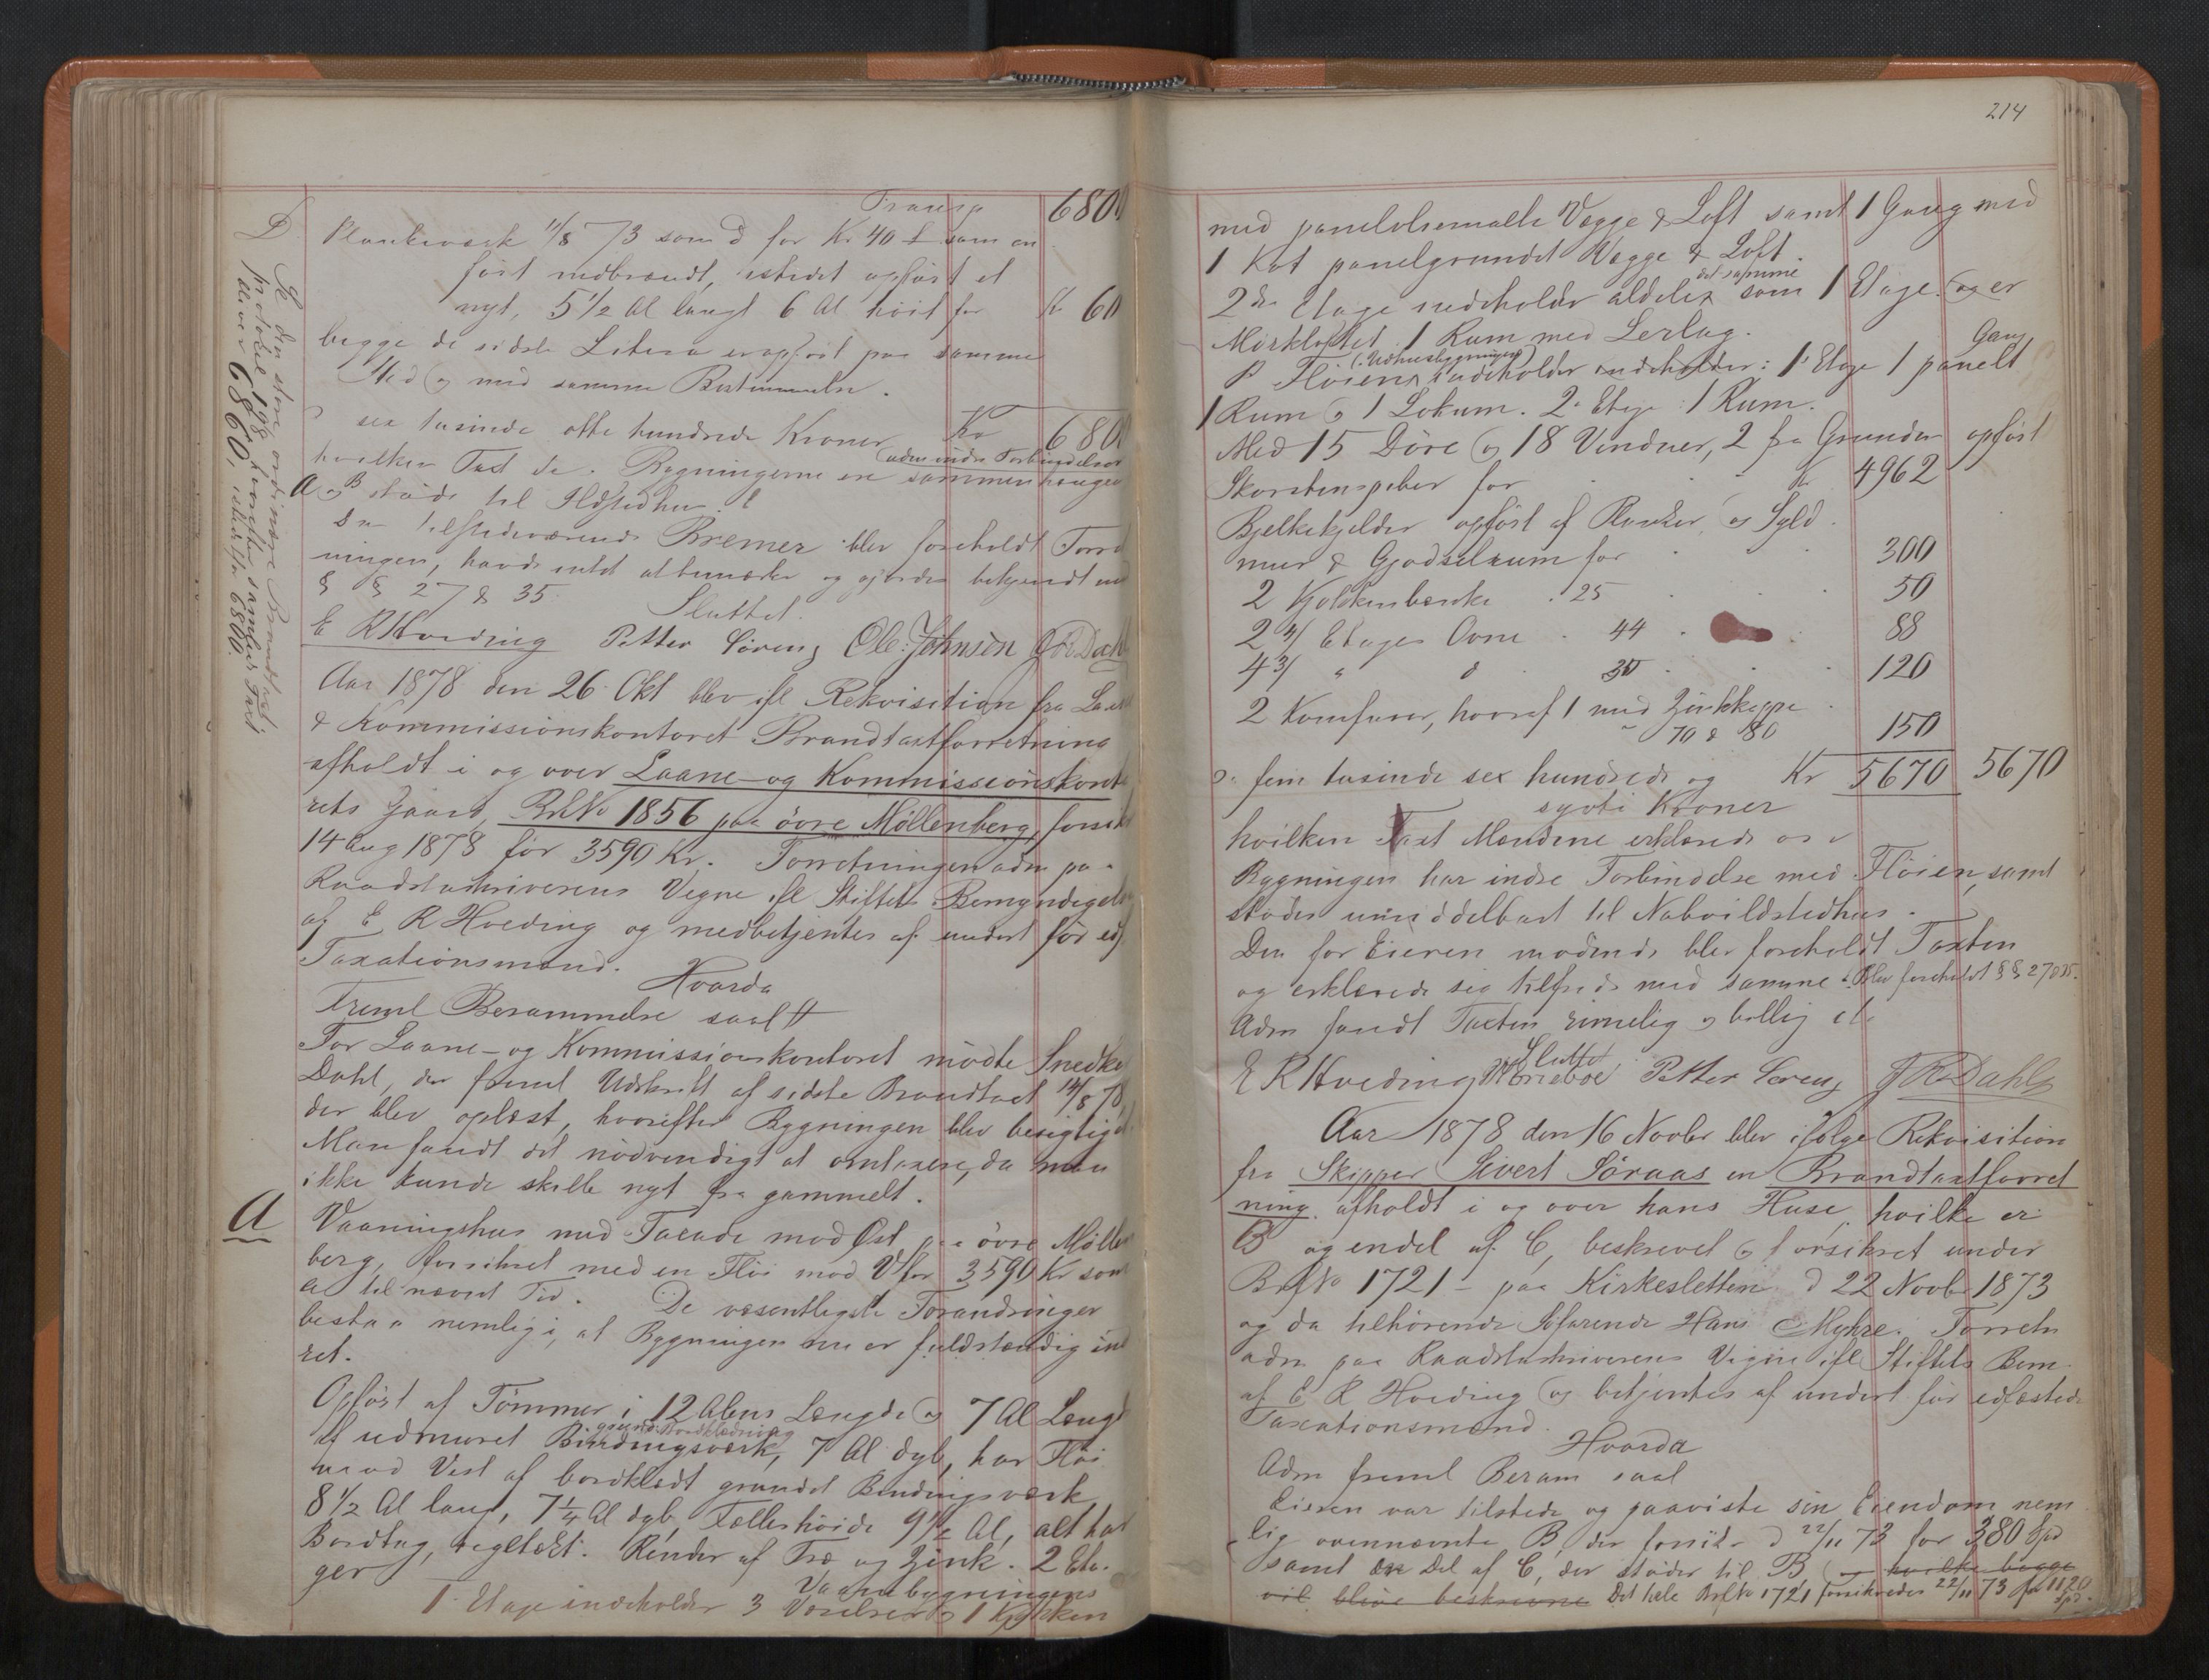 Transp 6800
D Plankeværk 11/8 73 som D for Kr 40 som en
ført nedbrændt, istedet opført et
nyt, 5 1/2 Al langt 6 Al höit for Kr 60
begge de sidste Litera er opført paa samme
Sted og med samme Bestemmelse.
sex tusinde otte hundrede Kroner Kr 680
hvilken Taxt de. Bygningerne ere uden indre Forbindelse sammenhængen
A og B støde til Ildstedhus.
Den tilstedeværende Bremer blev foreholdt Forret
ningen, havde intet at bemærke og gjordes bekjendt med
§ § 27 & 35.
Sluttet.
E R Hveding Petter Sørens Ole Johnsen J R Dahl
Se den store ordinære Brandtaxt,
protokol 198, hvorefter samlet Taxt
bliver 6860, istedetfor 6800.
Aar 1878 den 26 Okt blev ifl Rekvisition fra Laane
& Kommissionskontoret Brandtaxtforretning
afholdt i og over Laane- og Kommissionskonto
rets Gaard, Br No 1856 paa övre Möllenberg, forsik
14 Aug 1878 for 3590 Kr. Forretningen adm paa
Raadstuskriverens Vegne ifl Stiftets Bemyndigelse
af E R Hveding og medbetjentes af undert før edf.
Taxationsmænd.
Hvorda
Freml Berammelse saal
For Laane- og Kommissionskontoret mödte Snedker
Dahl, der freml Udskrift af sidste Brandtaxt 14/8 78,
der blev oplæst, hvorefter Bygningen blev besigtiget.
Man fandt det nödvendigt at omtaxere, da man
ikke kunde skille nyt fra gammelt.
A Vaaningshus med Facade mod Öst paa övre Möllen
berg, forsikret med en Flöi mod V for 3590 Kr som
a til nævnt Tid. De væsentligste Forandringer
bestaa nemlig i, at Bygningen nu er fuldstændig ind
ret.
Opført af Tømmer i 12 Alens Længde og 7 Al Længd
af udmuret Bindingsværk, grundt Bordklædning 7 Al dyb, har Flöi
mod Vest af bordklædt grundet Bindingsværk
8 1/2 Al lang, 7 1/4 Al dyb, Fælleshöide 9 1/2 Al, alt har
Bordtag, tegltækt. Render af Træ og Zink. 2 Eta-
ger
1. Etage indeholder Vaanebygningens 3 Værelser og 1 Kjøkken
214
med paneloliemalte Vægge & Loft samt 1 Gang med
1 Kot panelgrundet Vægge & Loft.
2den Etage indeholder aldeles det samme som 1 Etage. og er
Mörkloftet 1 Rum med Lerlag.
B Flöien (:Udhusbygningen) indeholder indeholder: 1 Etage 1 panelt Gang
1 Rum og 1 Lokum. 2. Etage 1 Rum.
Med 15 Döre og 18 Vinduer, 2 fra Grunden opført
Skorstenspiber for Kr 4962
Bjelkekjelder opført af Planker og Syld
mur & Gjødselrum for 300
2 Kjøkkenbænke 25 50
2 4/ Etages Ovne 44 88
4 3/ " d 30 120
2 Komfurer, hvoraf 1 med Zinkkappe
70 & 80 150
fem tusinde sex hundrede og Kr 5670 5670
sytti Kroner
hvilken Taxt Mændene erklærede os v
Bygningen har indre Forbindelse med Flöien, samt
støder umiddelbart til Naboildstedhus.
Den for Eieren mødende blev foreholdt Taxten
og erklærede sig tilfreds med samme. Blev foreholdt § § 27 & 35.
Adm fandt Taxten rimelig og billig
Sluttet
E R Hveding Petter Sörens J R Dahl
Aar 1878 den 16 Novbr blev ifølge Rekvisition
fra Skipper Sivert Söraas en Brandtaxtforret
ning afholdt i og over hans Huse, hvilke er
B og endel af C, beskrevet og forsikret under
Br No 1721 - paa Kirkesletten d 22 Novbr 1873
og da tilhørende Söfarende Hans Myhre. Forretn
adm paa Raadstuskriverens Vegne ifl Stiftets Bem
af E R Hveding og betjentes af undert før edfæstede
Taxationsmænd.
Hvorda
Adm freml Beram saal
Eieren var tilstede og paaviste sin Eiendom nem
lig ovennævnte B, der forsikr d 22/11 73 for 380 Spd
samt en Del af C, der støder til B, og hvilke begge
vil blive beskrevne Det hele Br No 1721 forsikredes 22/11 73 for 1120
Spd.